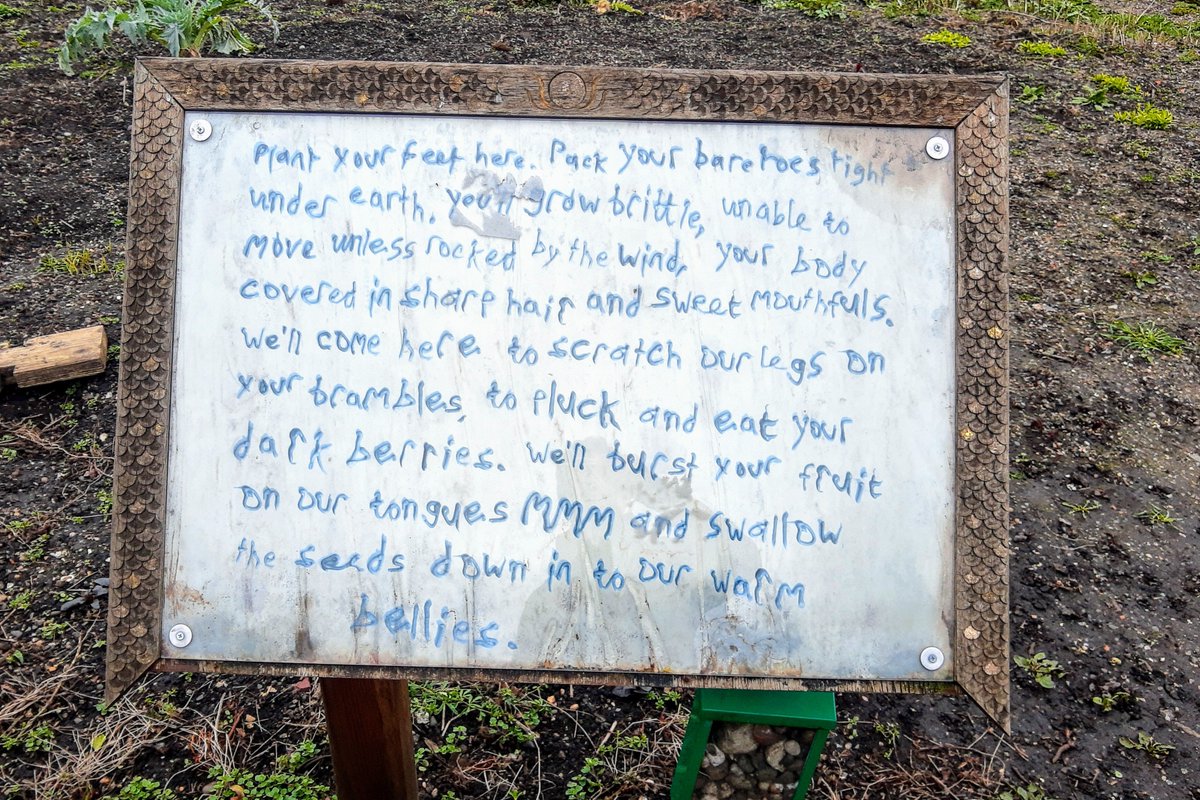 Plant your feet here. Pack your bare toes tight
under earth. you'll grow brittle, unable to
move unless rocked by the wind, your body
covered in sharp hair and sweet mouthfuls.
We'll come here to scratch our legs on
your brambles, to pluck and eat your
dark berries. We'll burst your fruit
on our tongues MMM and swallow
the seeds down in to our warm
bellies.